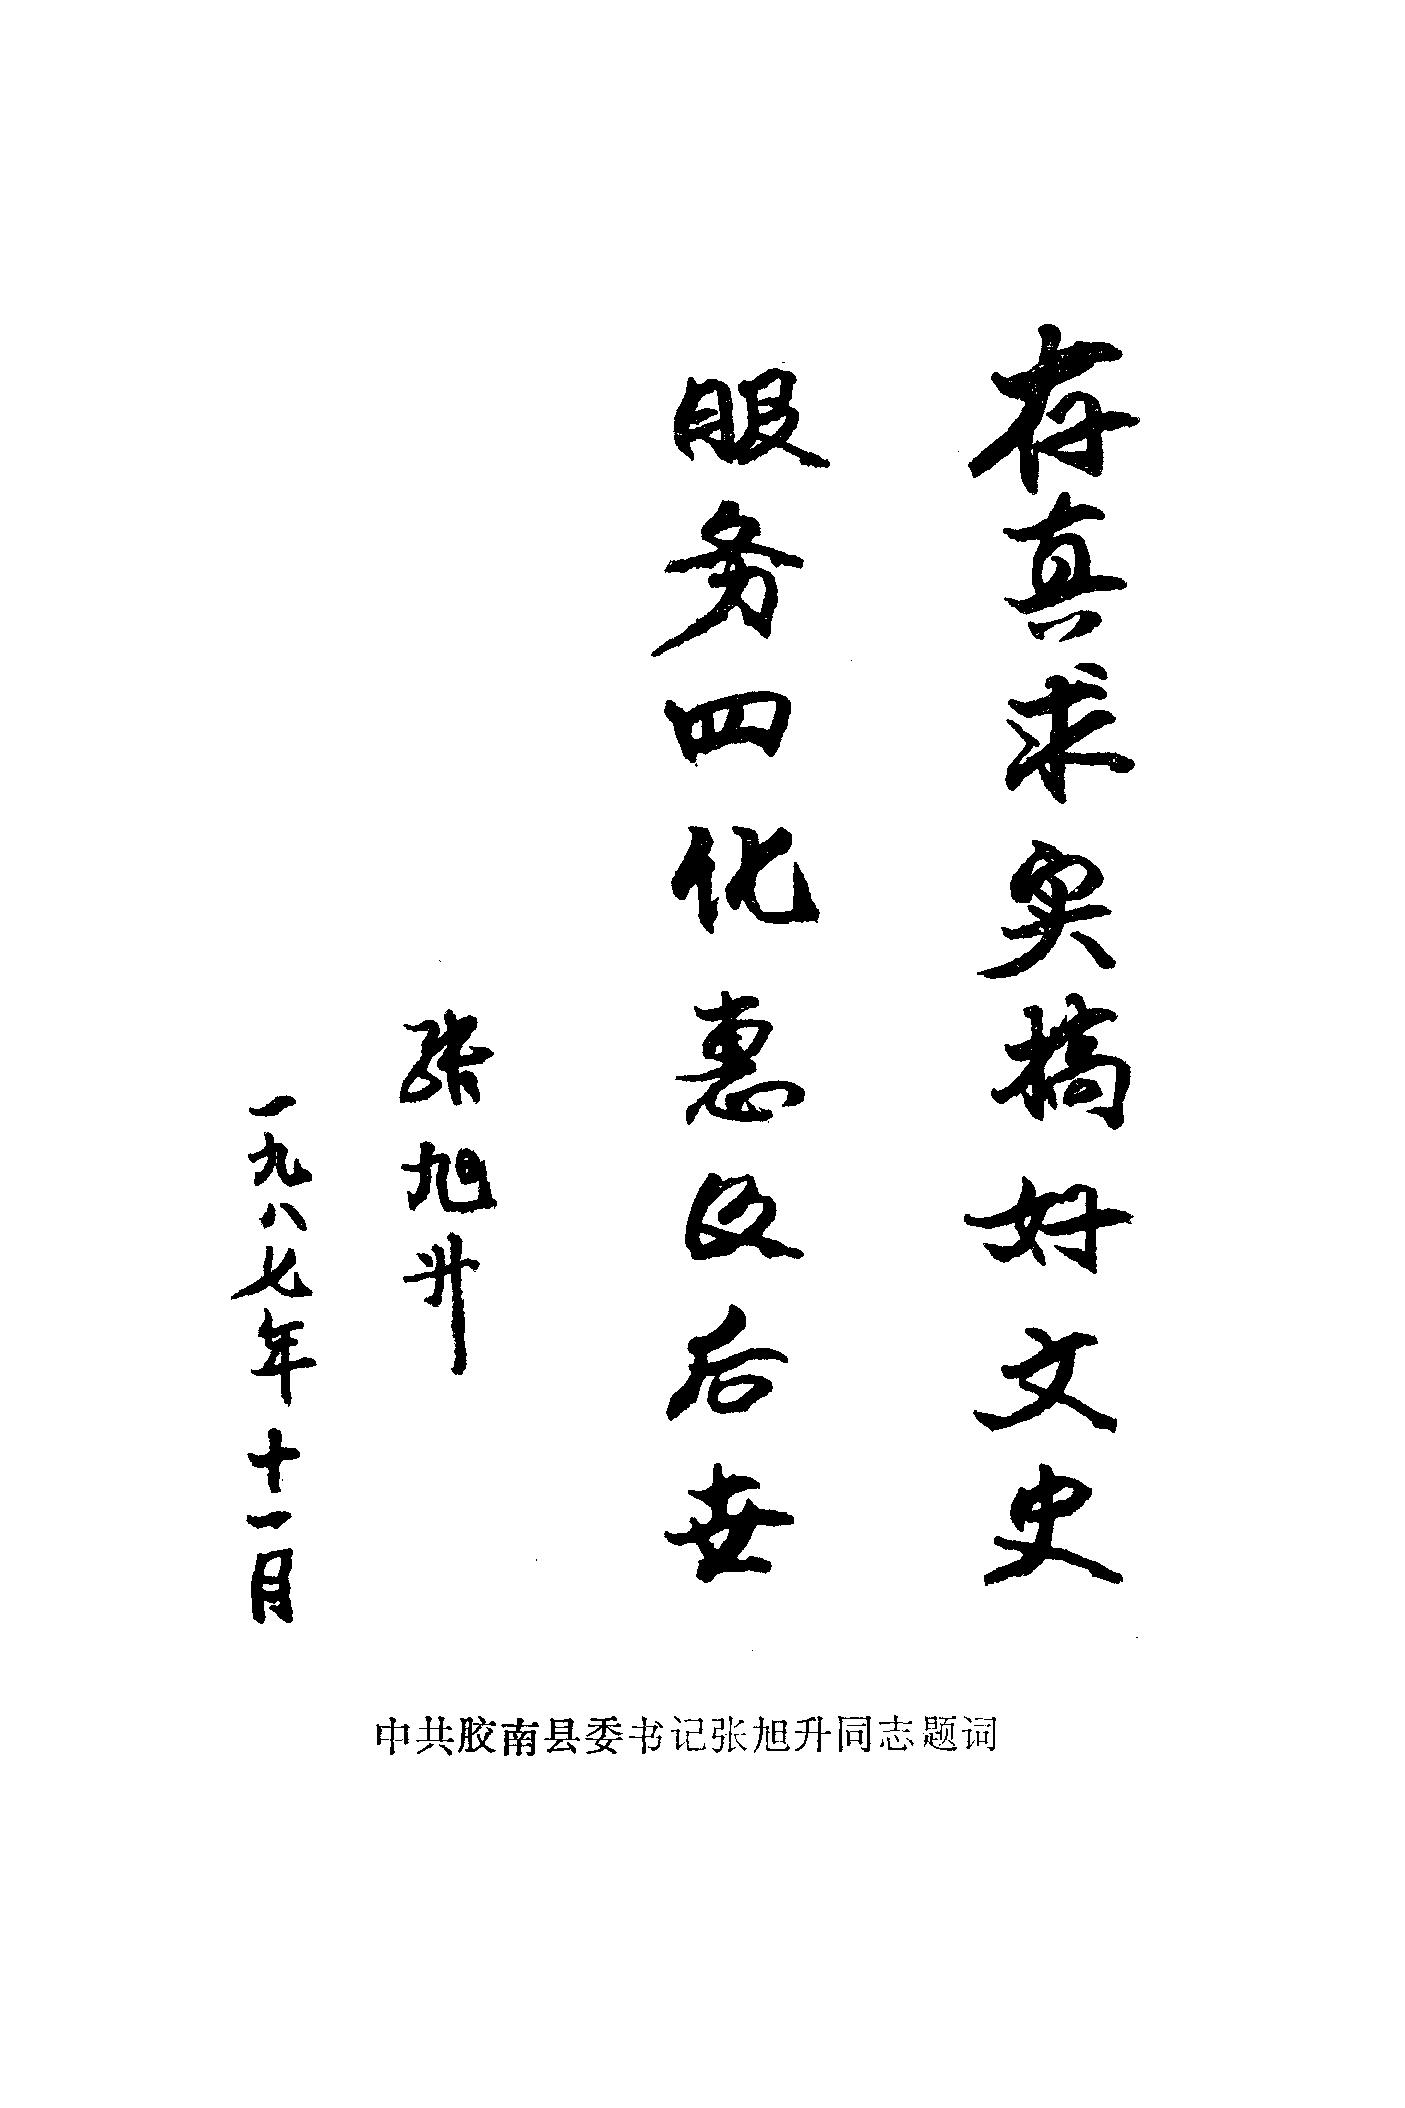 存真求实搞好文史
服务四化惠及后世
张旭升
一九八七年十一月
中共胶南县委书记张旭升同志题词